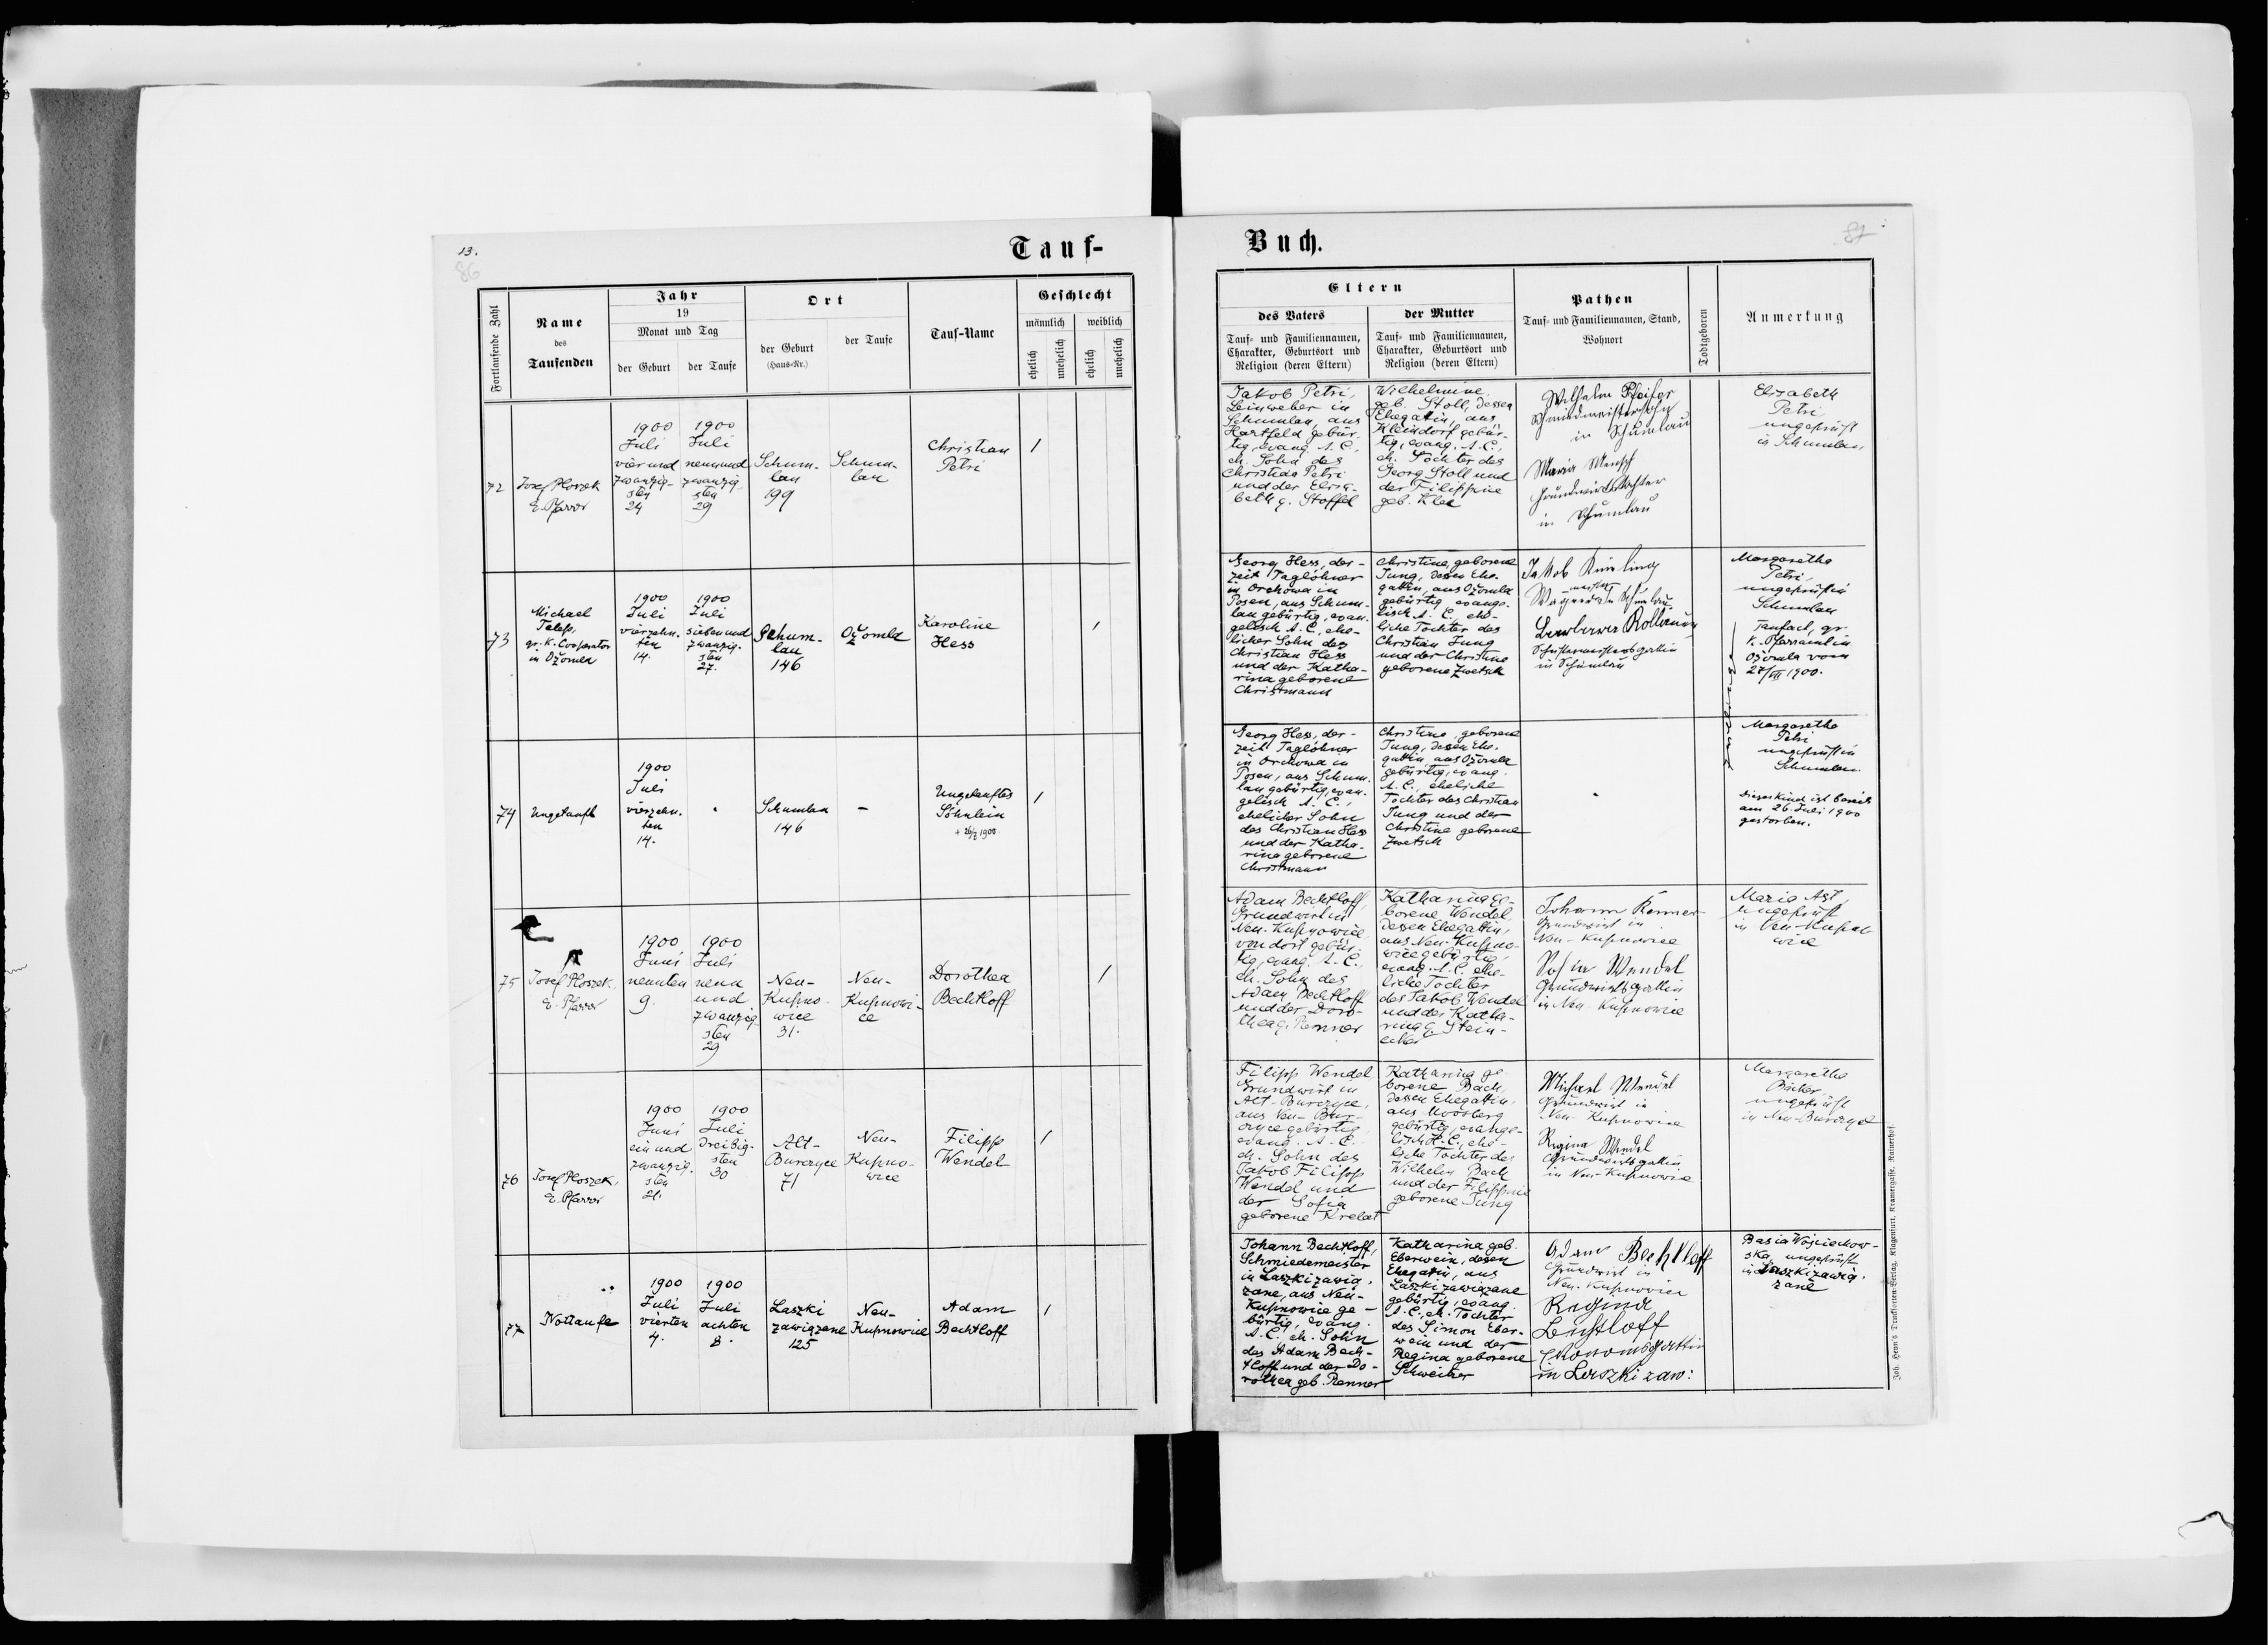 13.
86
Tauf-
Fortlaufende Zahl
Name
des
Taufenden
Jahr
19
Monat und Tag
der Geburt
der Taufe
Ort
der Geburt
(Haus-Nr.)
der Taufe
Tauf-Name
Geschlecht
männlich
weiblich
ehelich
unehelich
ehelich
unehelich
72
Josef Ploszek
E. Pfarrer
1900
Juli
vier und
zwanzig-
sten
24
1900
Juli
neunund
zwanzig
sten
29
Schum-
lau
199
Schum-
lau
Christian
Petri
/
73
Michael
gr. k. Cooperator
in Ożomla
1900
Juli
vierzehn-
ten
14.
1900
Juli
sieben und
zwanzig-
sten
27.
Schum-
lau
146
Ożomla
Karoline
Hess
/
74
Ungetauft
1900
Juli
vierzehn-
ten
14.
Schumlau
146
-
Ungetauftes
Söhnlein
+ 26/7 1900
/
75
Josef Ploszek,
E. Pfarrer
1900
Juni
neunten
9.
1900
Juli
neun
und
zwanzig-
sten
29
Neu-
Kupno-
wice
31.
Neu-
Kupnowi-
ce
Dorothea
Bechtloff
/
76
Josef Ploszek,
E. Pfarrer
1900
Juni
ein und
zwanzig-
sten
21.
1900
Juli
dreißig-
sten
30
Alt-
Burczyce
71
Neu-
Kupno-
wice
Filipp
Wendel
/
77
Nottaufe
1900
Juli
vierten
4.
1900
Juli
achten
8.
Laszki
zawiązane
125
Neu-
Kupnowice
Adam
Bechtloff
/
Buch.
87
Eltern
des Vaters
Tauf- und Familiennamen,
Charakter, Geburtsort und
Religion (deren Eltern)
der Mutter
Tauf- und Familiennamen,
Charakter, Geburtsort und
Religion (deren Eltern)
Pathen
Tauf- und Familiennamen, Stand,
Wohnort
Todtgeboren
Anmerkung
Jakob Petri,
Leinweber in
Schumlau, aus
Hartfeld gebür-
tig, evang. A. C.,
eh. Sohn des
Christian Petri
und der Elisa-
beth g. Stoffel
Wilhelmine
geb. Stoll, dessen
Ehegattin, aus
Kleindorf gebür-
tig, evang. A. C.,
eh. Tochter des
Georg Stoll und
der Filippine
geb. Klee
Wilhelm Pfeifer
Schmiedmeistersohn
in Schumlau
Maria Mensch
Grundwirtstochter
in Schumlau
Elisabeth
Petri
ungeprüft
in Schumlau
Georg Hess, der-
zeit Taglöhner
in Orchowa in
Posen, aus Schum-
lau gebürtig, evan-
gelisch A. C., ehe-
licher Sohn des
Christian Hess
und der Katha-
rina geborene
Christmann
Christine, geborene
Jung, dessen Ehe-
gattin, aus Ożomla
gebürtig, evange-
lisch A. C., ehe-
liche Tochter des
Christian Jung
und der Christine
geborene Zwetsch
Jakob
in Schumlau
in Schumlau
Margaretha
Petri,
ungeprüft in
Schumlau
Taufact, gr.
k. Pfarramt in
Ożomla vom
27/VII 1900.
Georg Hess, der-
zeit Taglöhner
in Orchowa in
Posen, aus Schum-
lau gebürtig, evan-
gelisch A. C.,
ehelicher Sohn
des Christian Hess
und der Katha-
rina geborene
Christmann
Christine, geborene
Jung, dessen Ehe-
gattin, aus Ożomla
gebürtig, evang.
A. C., eheliche
Tochter des Christian
Jung und der
Christine geborene
Zwetsch
Margaretha
Petri
ungeprüft in
Schumlau
Dieses Kind ist bereits
am 26. Juli 1900
gestorben.
Adam Bechtloff,
Grundwirt in
Neu-Kupnowice
von dort gebür-
tig, evang. A. C.,
eh. Sohn des
Adam Bechtloff
und der Doro-
thea g. Renner
Katharina ge-
borene Wendel
dessen Ehegattin,
aus Neu-Kupno-
wice gebürtig,
evang. A. C. ehe-
liche Tochter
des Jakob Wendel
und der Katha-
rina g. Stein-
ecker
Johann Renner
Grundwirt in
Neu-Kupnowice
Sofia Wendel
Grundwirtsgattin
in Neu Kupnowice
Maria Ast,
ungeprüft
in Neu-Kupno
wice
Filipp Wendel,
Grundwirt in
Alt-Burczyce,
aus Neu-Bur-
czyce gebürtig,
evang. A. C.
eh. Sohn des
Jakob Filipp
Wendel und
der Sofia
geborene Krelat
Katharina ge-
borene Bach,
dessen Ehegattin,
aus Moosberg
gebürtig, evange-
lisch A. C., ehe-
liche Tochter des
Wilhelm Bach
und der Filippine
geborene Jung
Michael Wendel
Grundwirt in
Neu-Kupnowice
Regina Wendel
Grundwirtsgattin
in Neu-Kupnowice
Margaretha
Bäcker,
ungeprüft
in Neu-Burczyce
Johann Bechtloff,
Schmiedemeister
in Laszki zawią-
zane, aus Neu-
Kupnowice ge-
bürtig, evang.
A. C. eh. Sohn
des Adam Bech-
tloff und der Do-
rothea geb. Renner
Katharina geb.
Eberwein, dessen
Ehegattin, aus
Laszki zawiązane
gebürtig, evang.
A. C., eh. Tochter
des Simon Eber-
wein und der
Regina geborene
Schweitzer
Adam Bechtloff
Grundwirt in
Neu-Kupnowice
Regina
Bechtloff
Ekonomsgattin
in Laszki zaw:
Basia Wojciechow-
ska, ungeprüft
in Laszki zawią-
zane
Joh. Heyn's Drucksorten-Verlag, Klagenfurt, Kramergasse, Rainerhof.